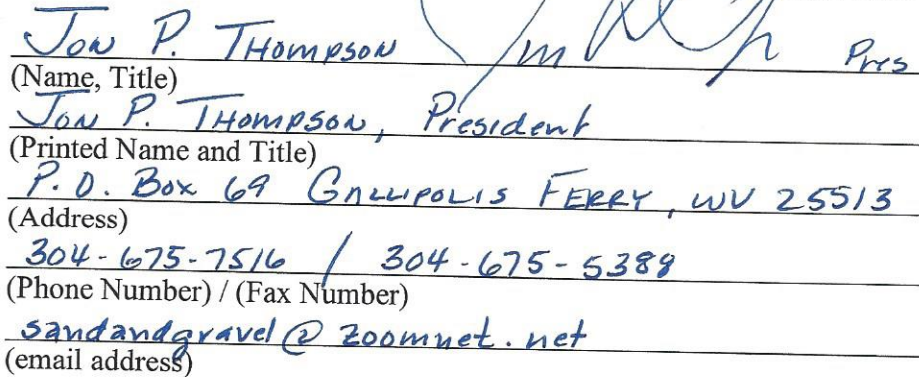 Jon P. Thompson Pres
(Name, Title)
Jon P. Thompson, President
(Printed Name and Title)
P.O. Box 69 Gallipolis Ferry, WV 25513
(Address)
304-675-7516 / 304-675-5389
(Phone Number) / (Fax Number)
sandandgravel@zoomnet.net
(email address)